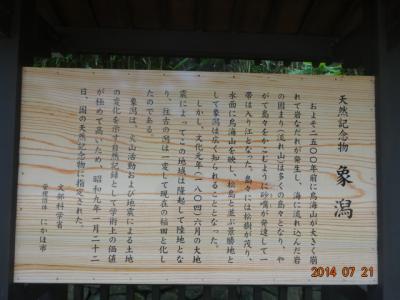 天然記念物 象潟
およそ二五〇〇年前に鳥海山が大きく崩
れて岩なだれが発生し、海に流れ込んだ岩
の固まり（流れ山）は多くの島々となり、や
がて島々をかこむように砂嘴が発達して一
帯は入り江となった。島々には松樹が茂り、
水面に鳥海山を映し、松島と並ぶ景勝地と
して象潟は広く知られることとなった。
しかし、文化元年（一八〇四）六月の大地
震によってこの地域は隆起して陸地とな
り、往古の潟は一変して現在の稲田と化し
たのである。
象潟は、火山活動および地震による土地
の変化を示す自然記録として学術上の価値
が極めて高いため、昭和九年一月二十二
日、国の天然記念物に指定された。
文部科学省
管理団体 にかほ市
2014 07 21